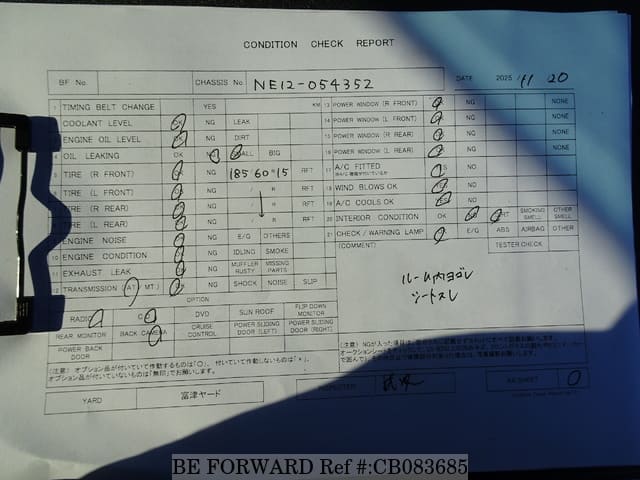 CONDITION CHECK REPORT
BF No. CHASSIS No NE12-054352 DATE 2025/11 20
1 TIMING BELT CHANGE YES KM
2 COOLANT LEVEL OK NG LEAK
3 ENGINE OIL LEVEL OK NG DIRT
4 OIL LEAKING OK NG SMALL BIG
5 TIRE (R FRONT) OK NG 185 60 R 15 RFT
6 TIRE (L FRONT) NG / R RFT
TIRE (R REAR) NG / R RFT
TIRE (L REAR) NG / R RFT
ENGINE NOISE NG E/G OTHERS
10 ENGINE CONDITION NG IDLING SMOKE
11 EXHAUST LEAK NG MUFFLER RUSTY MISSING PARTS
12 TRANSMISSION (AT/ MT) NG SHOCK NOISE SLIP
13 POWER WINDOW (R FRONT) NG NONE
14 POWER WINDOW (L FRONT) NG NONE
15 POWER WINDOW (R REAR) NG NONE
16 POWER WINDOW (L REAR) NG NONE
17 A/C FITTED NO
18 WIND BLOWS OK NO
19 A/C COOLS OK NO
20 INTERIOR CONDITION OK DIRT SMOKING SMELL OTHER SMELL
21 CHECK / WARNING LAMP E/G ABS AIRBAG OTHER
(COMMENT) TESTER CHECK
ルーム内ヨゴレ
シートスレ
OPTION
RADIO CD DVD SUN ROOF FLIP DOWN MONITOR
REAR MONITOR BACK CAMERA CRUISE CONTROL POWER SLIDING DOOR (LEFT) POWER SLIDING DOOR (RIGHT)
POWER BACK DOOR
(注意) オプション品が付いていて作動するものは「○」、付いていて作動しないものは「×」、
オプション品が付いていないものは「無印」でお願いします。
YARD 富津ヤード INSPECTOR
BE FORWARD Ref #:CB083685